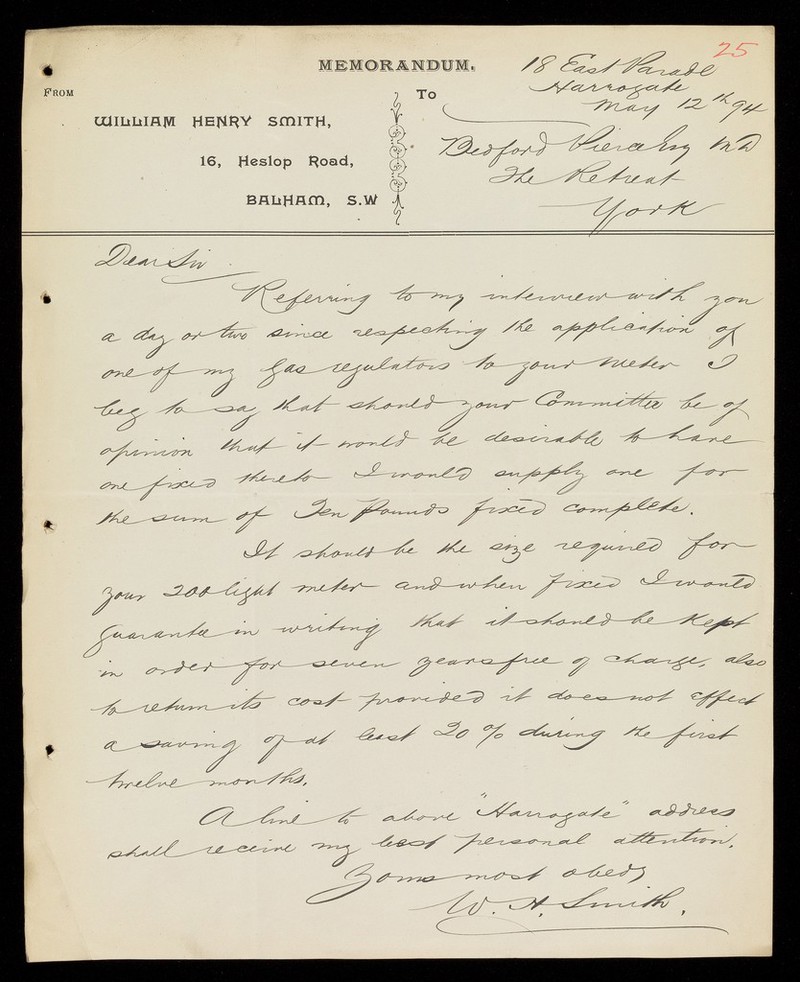 25
MEMORANDUM.
18 East Parade
Harrogate
May 12th 94
FROM
WILLIAM HENRY SMITH,
16, Heslop Road,
BALHAM, S.W
To
Bedford Pierce Esq MD
The Retreat
York
Dear Sir
Referring to my interview with you
a day or two since respecting the application of
one of my Gas regulators to your Meter I
beg to say that should your Committee be of
opinion that it would be desirable to have
one fixed thereto I would supply one for
the sum of Ten Pounds fixed complete.
It should be the size required for
your 200 light meter and when fixed I would
guarantee in writing that it should be kept
in order for seven years free of charge, also
to return its cost provided it does not effect
a saving of at least 20 % during the first
twelve months.
A line to above "Harrogate" address
shall receive my best personal attention.
Yours most obedy
W. H. Smith.